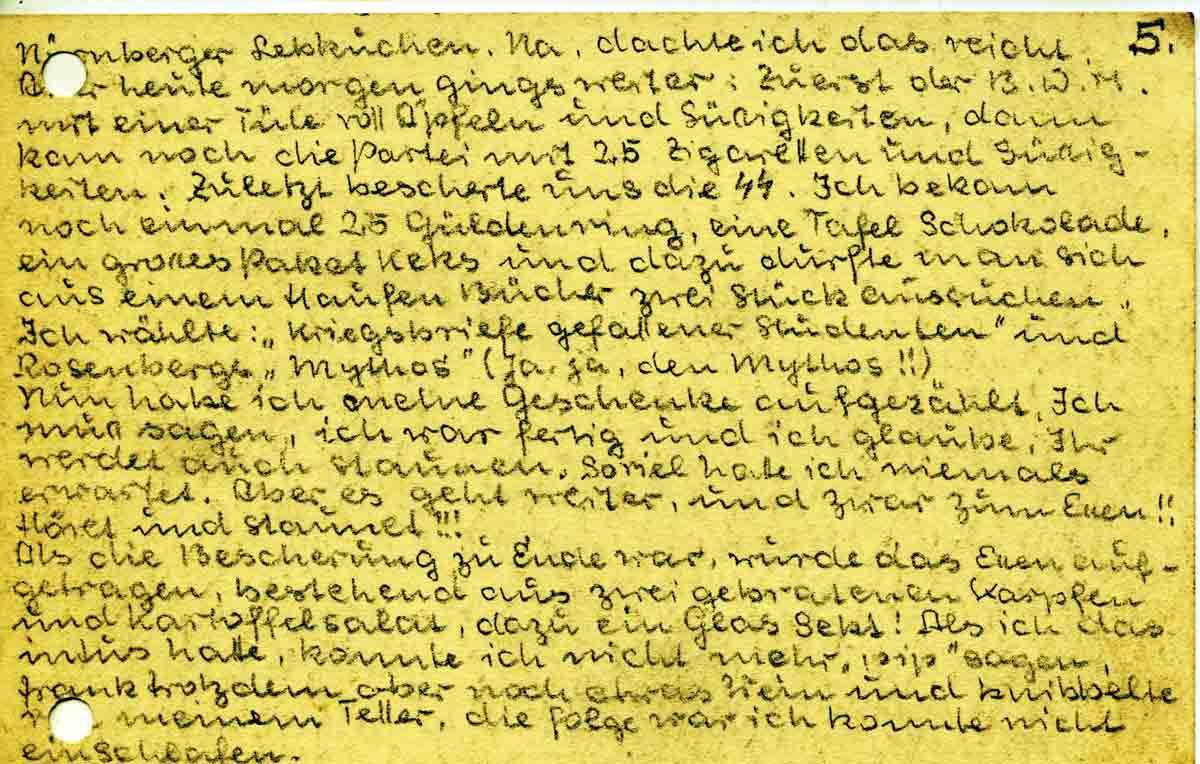 5.
Nürnberger Lebkuchen. Na, dachte ich das reicht.
Aber heute morgen gings weiter: Zuerst der B.D.M.
mit einer Tüte voll Äpfeln und Süßigkeiten, dann
kam noch die Partei mit 25 Zigaretten und Süßig-
keiten. Zuletzt bescherte uns die SS. Ich bekam
noch einmal 25 Güldenring, eine Tafel Schokolade,
ein großes Paket Keks und dazu durfte man sich
aus einem Haufen Bücher zwei Stück aussuchen.
Ich wählte: „Kriegsbriefe gefallener Studenten" und
Rosenbergs „Mythos" (Ja. ja, den Mythos!!)
Nun habe ich meine Geschenke aufgezählt. Ich
muß sagen, ich war fertig und ich glaube, Ihr
werdet auch staunen. Soviel hatte ich niemals
erwartet. Aber es geht weiter, und zwar zum Essen!!
Höret und staunet!!!
Als die Bescherung zu Ende war, wurde das Essen auf-
getragen, bestehend aus zwei gebratenen Karpfen
und Kartoffelsalat, dazu ein Glas Sekt! Als ich das
intus hatte, konnte ich nicht mehr „pip" sagen,
trank trotzdem aber noch etwas Wein und knibbelte
von meinem Teller, die Folge war ich konnte nicht
einschlafen.